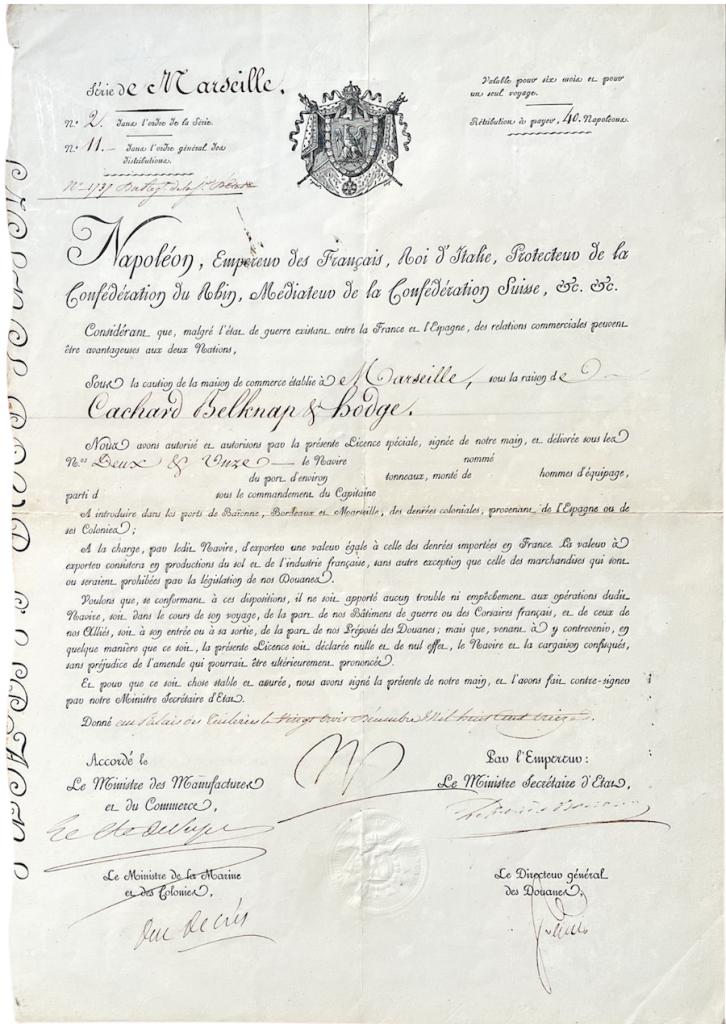 Série de Marseille.
N.º 2. dans l'ordre de la Série.
N.º 11.— dans l'ordre général des
distributions.
Valable pour six mois et pour
un seul voyage.
Rétribution à payer, 40. Napoléons.
Napoléon, Empereur des Français, Roi d'Italie, Protecteur de la
Confédération du Rhin, Médiateur de la Confédération Suisse, &c. &c.
Considérant que, malgré l'état de guerre existant entre la France et l'Espagne, des relations commerciales peuvent
être avantageuses aux deux Nations,
Sous la caution de la maison de commerce établie à Marseille, sous la raison de
Cachard Belknap & hodge.
Nous avons autorisé et autorisons par la présente Licence spéciale, signée de notre main, et délivrée sous les
N.os Deux & Onze — le Navire nommé
du port d'environ tonneaux, monté de hommes d'équipage,
parti d sous le commandement du Capitaine
A introduire dans les ports de Baïonne, Bordeaux et Marseille, des denrées coloniales, provenant de l'Espagne ou de
ses Colonies ;
A la charge, par ledit Navire, d'exporter une valeur égale à celle des denrées importées en France. La valeur à
exporter consistera en productions du sol et de l'industrie française, sans autre exception que celle des marchandises qui sont
ou seraient prohibées par la législation de nos Douanes.
Voulons que, se conformant à ces dispositions, il ne soit apporté aucun trouble ni empêchement aux opérations dudit
Navire, soit dans le cours de son voyage, de la part de nos Bâtimens de guerre ou des Corsaires français, et de ceux de
nos Alliés, soit à son entrée ou à sa sortie, de la part de nos Préposés des Douanes ; mais que, venant à y contrevenir, en
quelque manière que ce soit, la présente Licence soit déclarée nulle et de nul effet, le Navire et la cargaison confisqués,
sans préjudice de l'amende qui pourrait être ultérieurement prononcée.
Et pour que ce soit chose stable et assurée, nous avons signé la présente de notre main, et l'avons fait contre-signer
par notre Ministre Secrétaire d'État.
Donné au Palais des Tuileries le Vingt trois Décembre Mil huit Cent treize.
Accordé le
Le Ministre des Manufactures
et du Commerce,
Par l'Empereur :
Le Ministre Secrétaire d'État,
Le Ministre de la Marine
et des Colonies,
Le Directeur général
des Douanes,
duc decrès